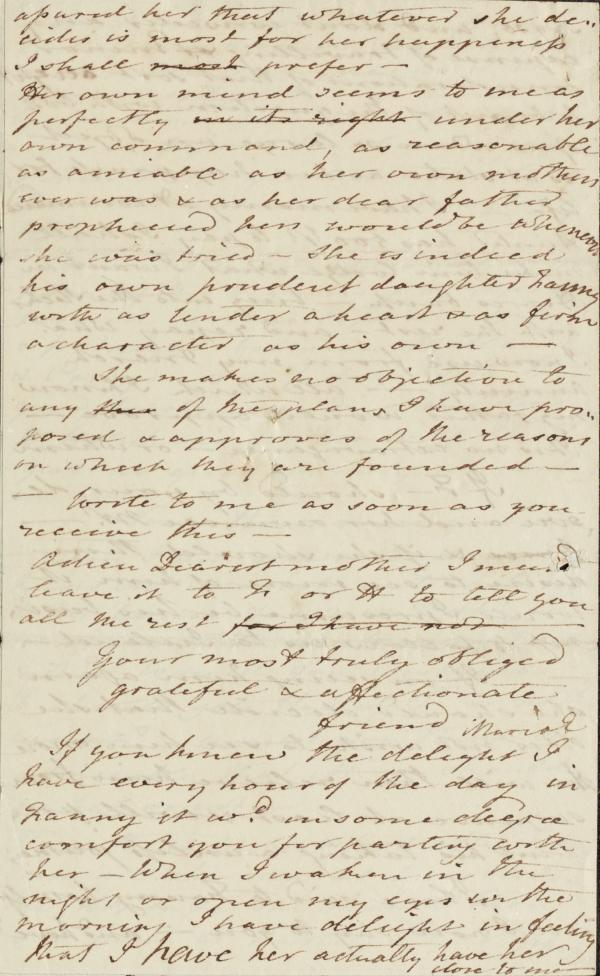 apured her that whatever she de-
cides is most for her happiness
I shall most prefer —
Her own mind seems to me as
perfectly in its right under her
own command, as reasonable
as amiable as her own mothers
ever was & as her dear father
prophecied hers would be whenever
she was tried — She is indeed
his own prudent daughter Fanny
with as tender a heart & as firm
a character as his own —
She makes no objection to
any of the plans I have pro-
posed & approves of the reasons
on which they are founded —
— Write to me as soon as you
receive this —
Adieu Dearest mother I must
leave it to F or H to tell you
all the rest for I have not
Your most truly obliged
grateful & affectionate
friend Maria E
If you knew the delight I
have every hour of the day in
Fanny it wd. in some degree
comfort you for parting with
her — When I waken in the
night or open my eyes in the
morning I have delight in feeling
that I have her actually have her
close to me